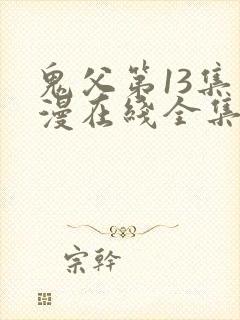 鬼父第13集
漫在綫全集
宗幹